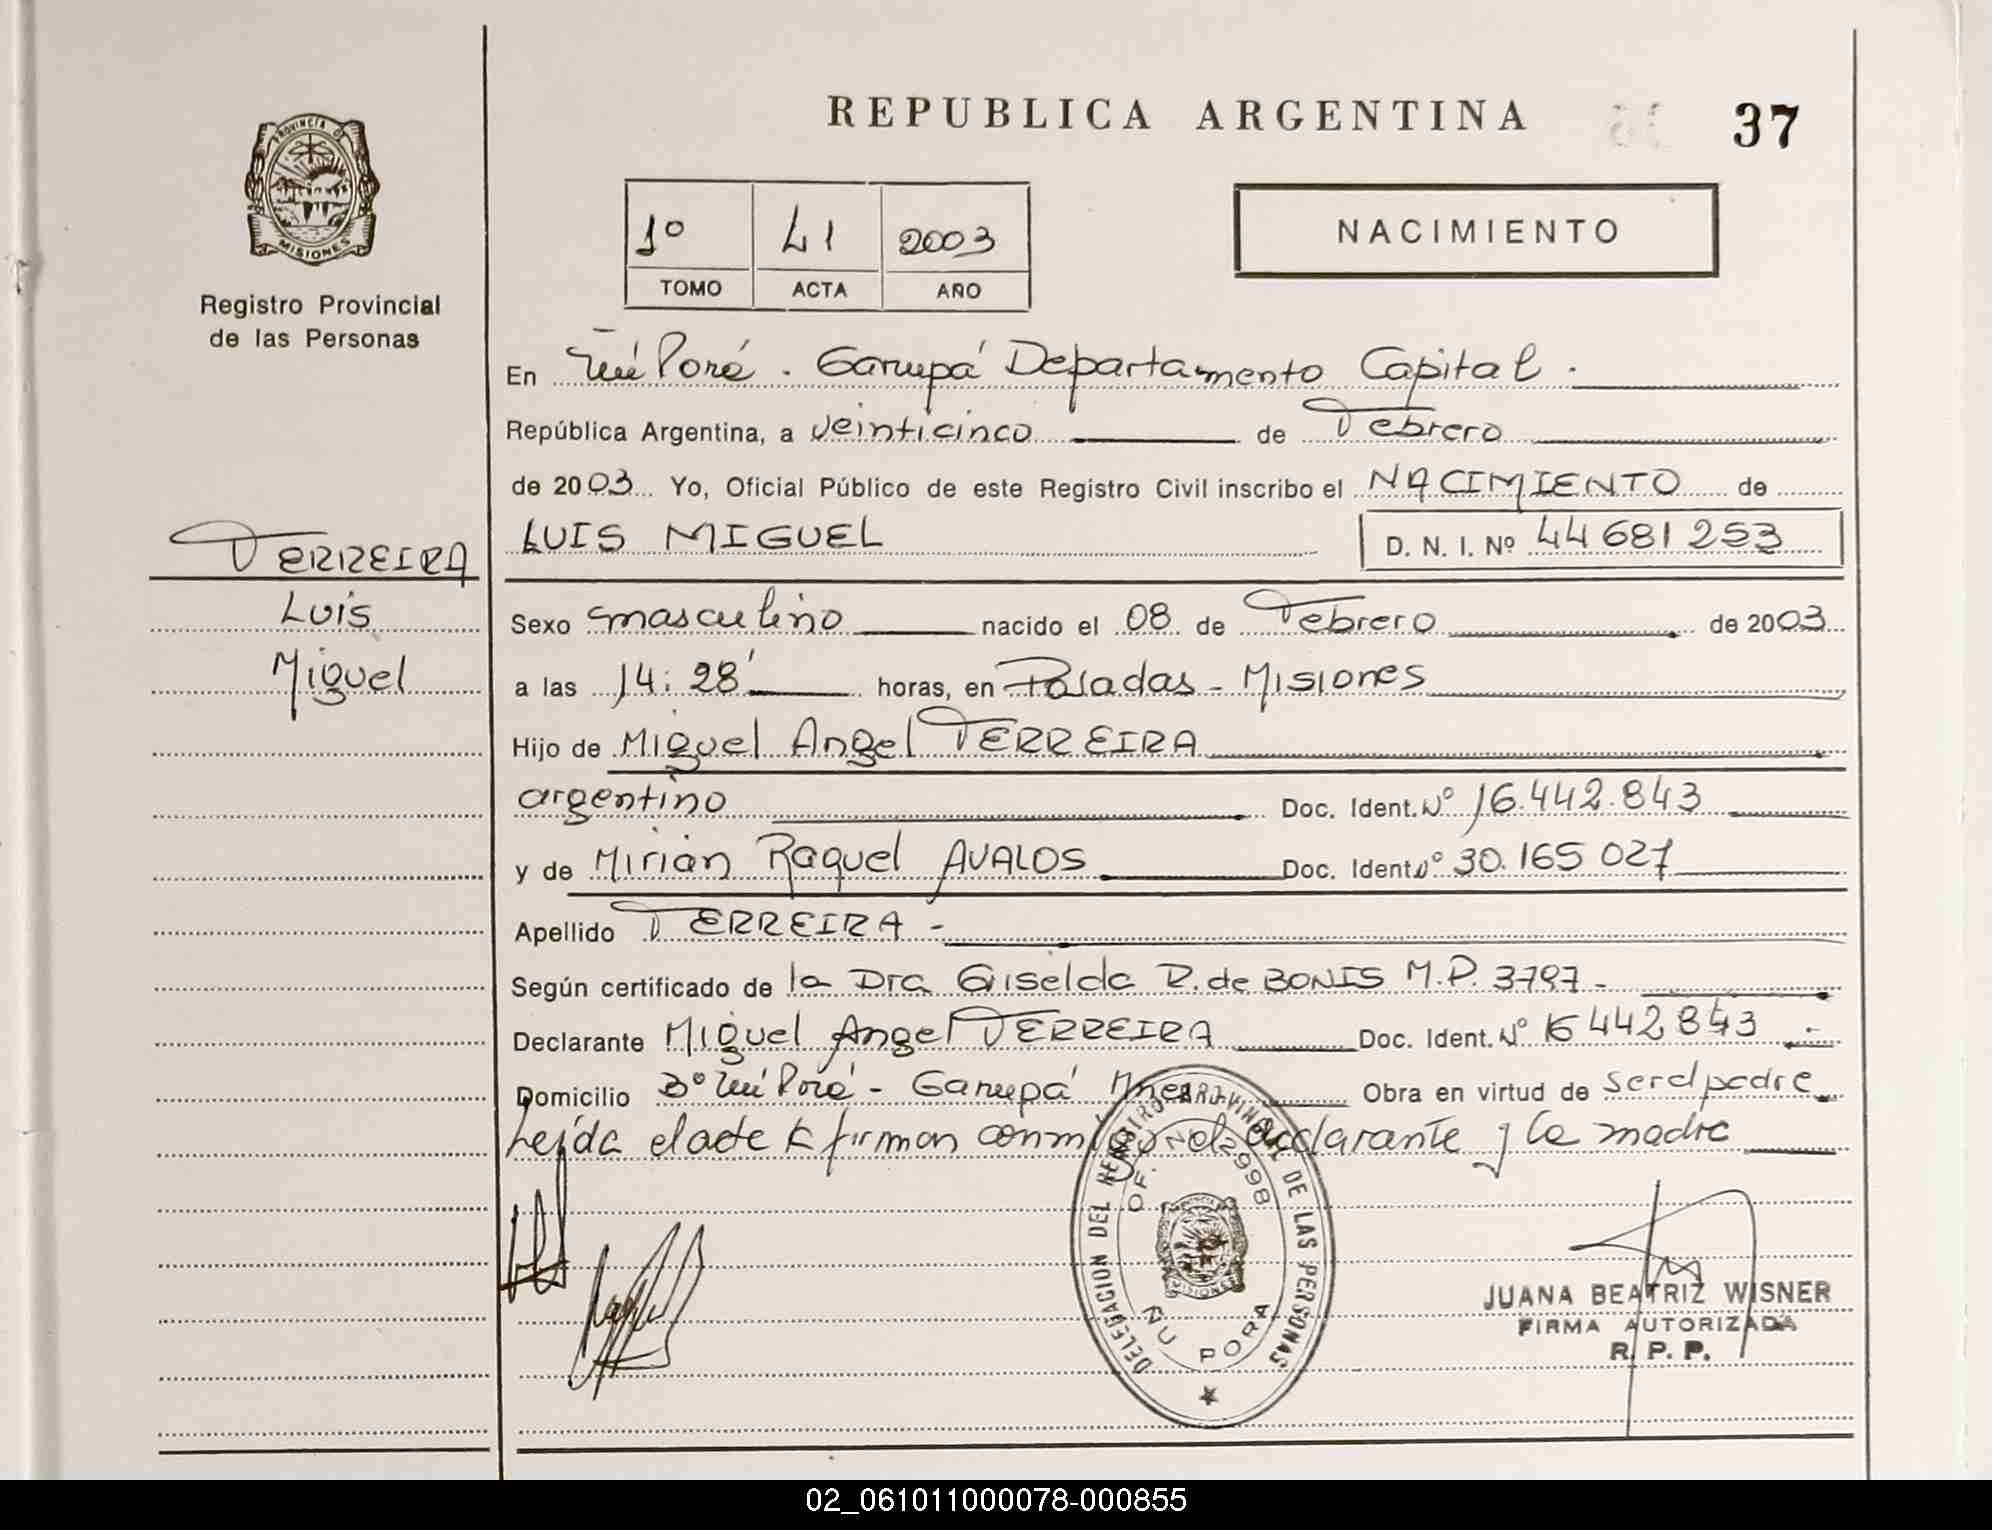 REPUBLICA ARGENTINA
37
PROVINCIA DE MISIONES
Registro Provincial
de las Personas
1º 41 2003
TOMO ACTA AÑO
NACIMIENTO
En Ñu Porá. Garupá Departamento Capital.
República Argentina, a veinticinco de Febrero
de 2003 Yo, Oficial Público de este Registro Civil inscribo el NACIMIENTO de
LUIS MIGUEL D. N. I. Nº 44 681 253
FERREIRA
Luis
Miguel
Sexo masculino nacido el 08 de Febrero de 2003
a las 14:28' horas, en Posadas - Misiones
Hijo de Miguel Angel FERREIRA
argentino Doc. Ident. Nº 16.442.843
y de Mirian Raquel AVALOS Doc. Ident Nº 30.165 027
Apellido FERREIRA -
Según certificado de la Dra Giselda R. de BONIS M.P. 3797 -
Declarante Miguel Angel FERREIRA Doc. Ident. Nº 16 442 843
Domicilio Bº Ñu Porá - Garupá Mnes Obra en virtud de ser el padre
Leída el acta la firman conmigo el declarante y la madre
DELEGACION DEL REGISTRO PROVINCIAL DE LAS PERSONAS
OF. Nº 2998
ÑU PORA
JUANA BEATRIZ WISNER
FIRMA AUTORIZADA
R. P. P.
02_061011000078-000855